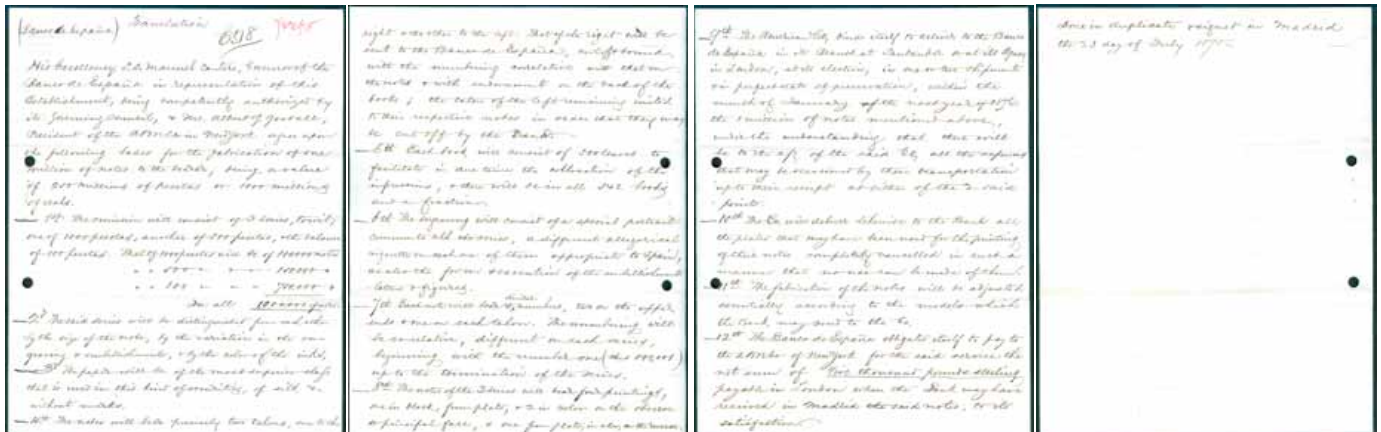 (Banco de España) Translation
6518
His Excellency Sr. Dn. Manuel Cantero, Governor of the
Banco de España in representation of this
Establishment, being competently authorized by
its Governing Council, & Mr. Albert G. Goodall,
President of the ABNCo in New York agree upon
the following bases for the fabrication of one
million of notes to the bearer, being a value
of 200 millions of pesetas or 1000 millions
of reals.
1st The emission will consist of 3 series,
one of 1000 pesetas, another of 500 pesetas, & the balance
of 100 pesetas. That of 1000 pesetas will be of 100000 notes
" " 500 " " " "
" " 100 " " " 700000 "
In all 1000000
2d The said series will be distinguished from each other
by the size of the notes, by the variation in the en-
graving & embellishments, & by the color of the inks.
3d The paper will be of the most superior class
that is used in this kind of & solid &
without
4th The notes will have two talons, one to the
right & other to the left. That of the right will be
sent to the Banco de España, well bound
with the numbering correlative with that on
the notes & with endorsement on the back of the
books; the talon of the left remaining united
to their respective notes in order that they may
be cut off by the Bank.
5th Each book will consist of 200 leaves to
facilitate in due time the collocation of the
& there will be in all books
and a fraction.
6th The engraving will consist of a special portrait
common to all the series, a different allegorical
vignette on each one of them appropriate to Spain,
as also the form & execution of the embellishments
letters & figures.
7th Each note will have numbers, two on the upper
ends & one on each talon. The numbering will
be correlative, different in each series,
beginning with the number one (thus 000,001)
up to the termination of the series.
8th The notes of the 3 series will have four printings,
one in black, from plate, & 2 in color on the obverse
or principal face, & one from plate, in color, on the reverse.
9th The American Co. binds itself to deliver to the Banco
de España in its Branch at Santander or at its Agency
in London, at its election, in one or two shipments
in perfect state of preservation, within the
month of January of the next year of 1876
the 1 million of notes mentioned above,
under the understanding that there will
be to the a/c of the said Co. all the expenses
that may be occasioned by their transportation
up to their receipt at either of the 2 said
points.
10th The Co. will deliver likewise to the Bank all
the plates that may have been used for the printing
of these notes completely cancelled in such a
manner that no use can be made of them.
11th The fabrication of the notes will be adjusted
essentially according to the models which
the Bank may send to the Co.
12th The Banco de España obligates itself to pay to
the ABNCo of New York for the said service the
net sum of thousand pounds sterling
payable in London when the Bank may have
received in Madrid the said notes, to its
satisfaction.
Done in duplicate & signed in Madrid
the 23 day of July 1875